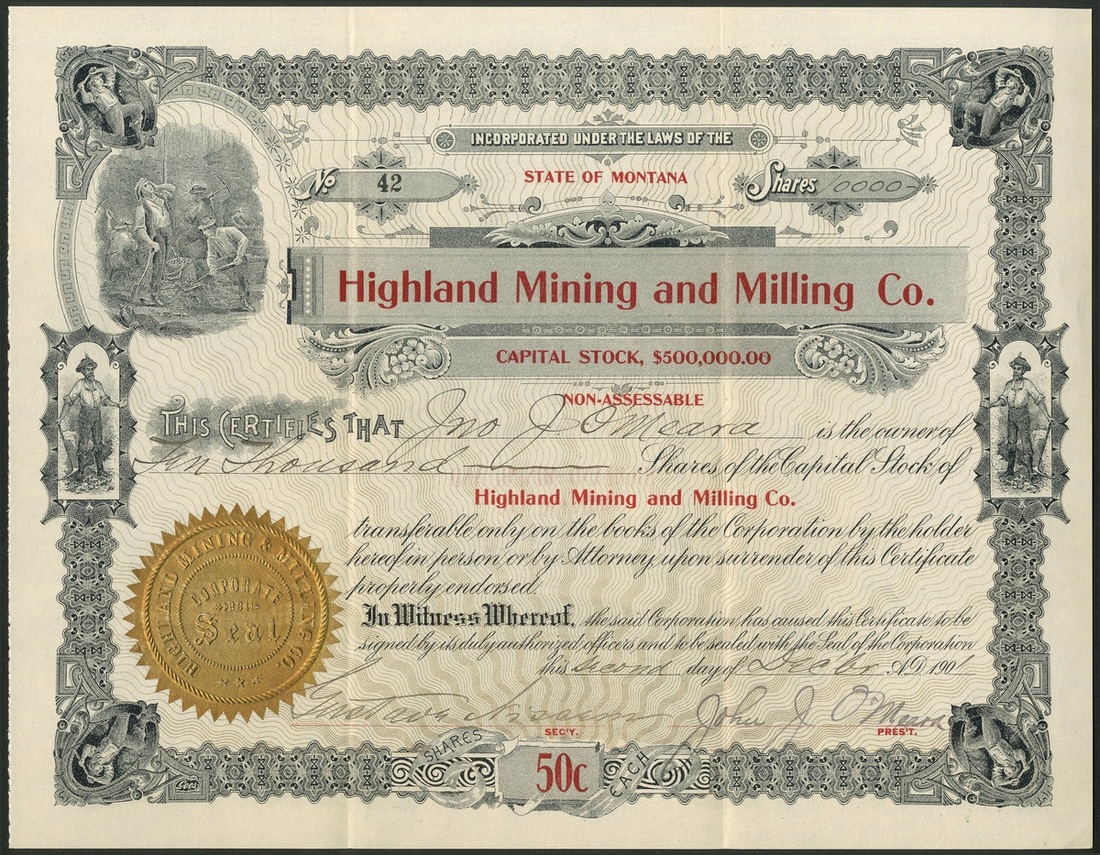 INCORPORATED UNDER THE LAWS OF THE
STATE OF MONTANA
No 42
Shares 10000-
Highland Mining and Milling Co.
CAPITAL STOCK, $500,000.00
NON-ASSESSABLE
THIS CERTIFIES THAT Jno J. O'Meara is the owner of
ten thousand Shares of the Capital Stock of
Highland Mining and Milling Co.
transferable only on the books of the Corporation by the holder
hereof in person or by Attorney upon surrender of this Certificate
properly endorsed.
In Witness Whereof, the said Corporation has caused this Certificate to be
signed by its duly authorized officers and to be sealed with the Seal of the Corporation
this second day of Decbr A.D. 1901
HIGHLAND MINING & MILLING CO.
CORPORATE
Seal
Gustave
John J O'Meara
SEC'Y.
PRES'T.
SHARES 50c EACH